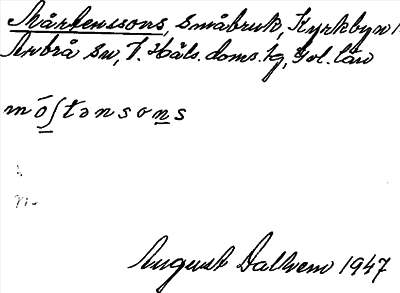 Mårtenssons, småbruk, Kyrkbyn 1.
Arbrå sn, V. Häls. doms. tg, Gvl. län
mo̅ʃtənsons
August Dalhem 1947